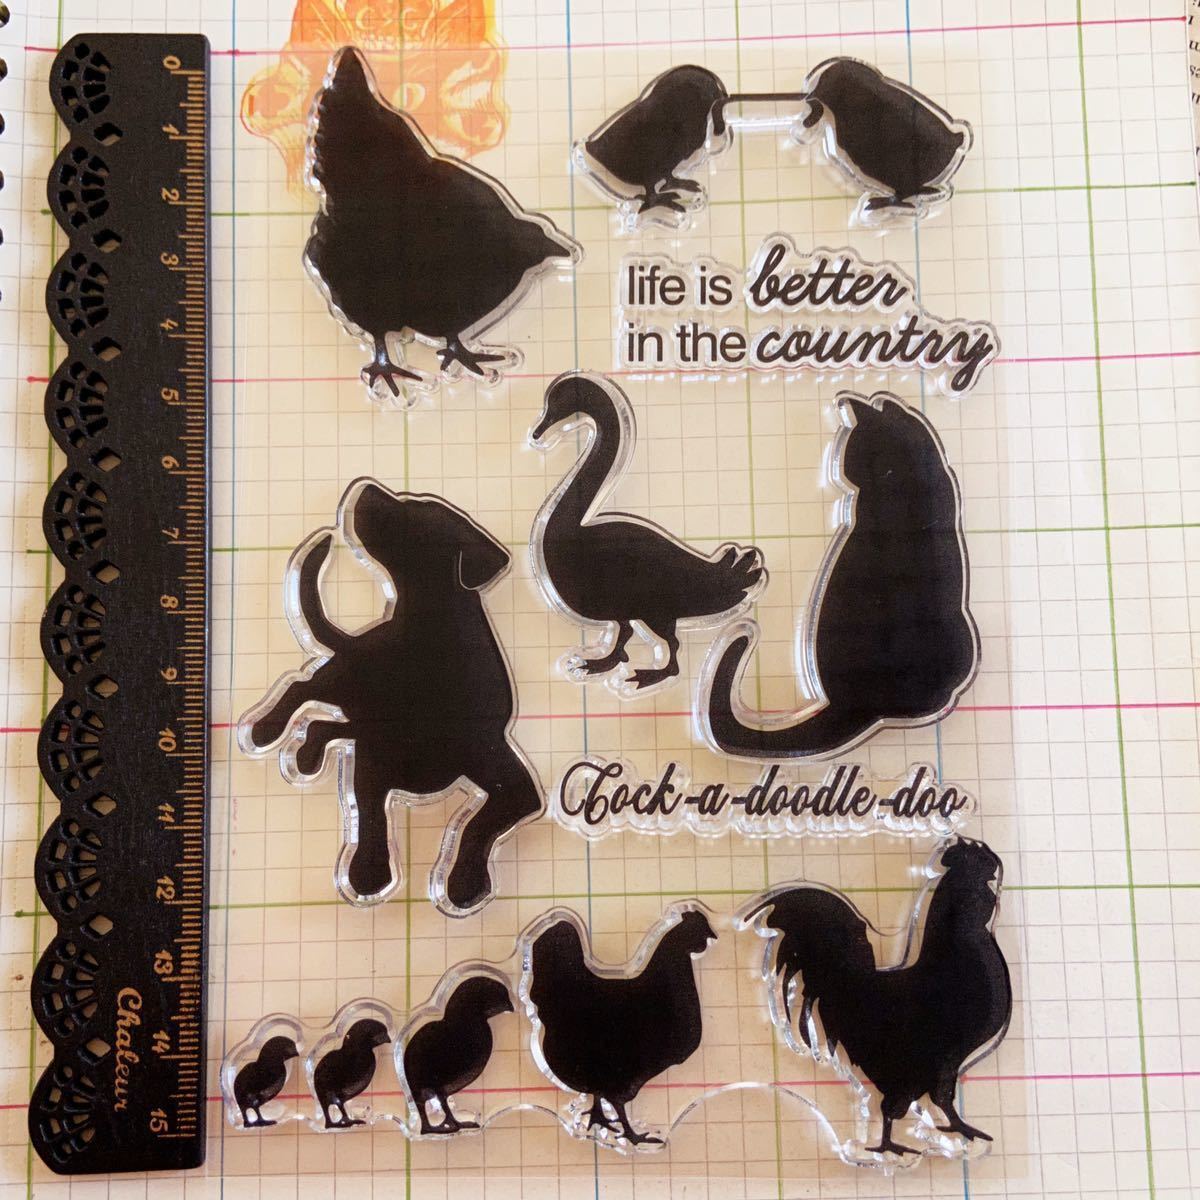 life is better
in the country
Cock-a-doodle-doo
0 1 2 3 4 5 6 7 8 9 10 11 12 13 14 15
Chaleur